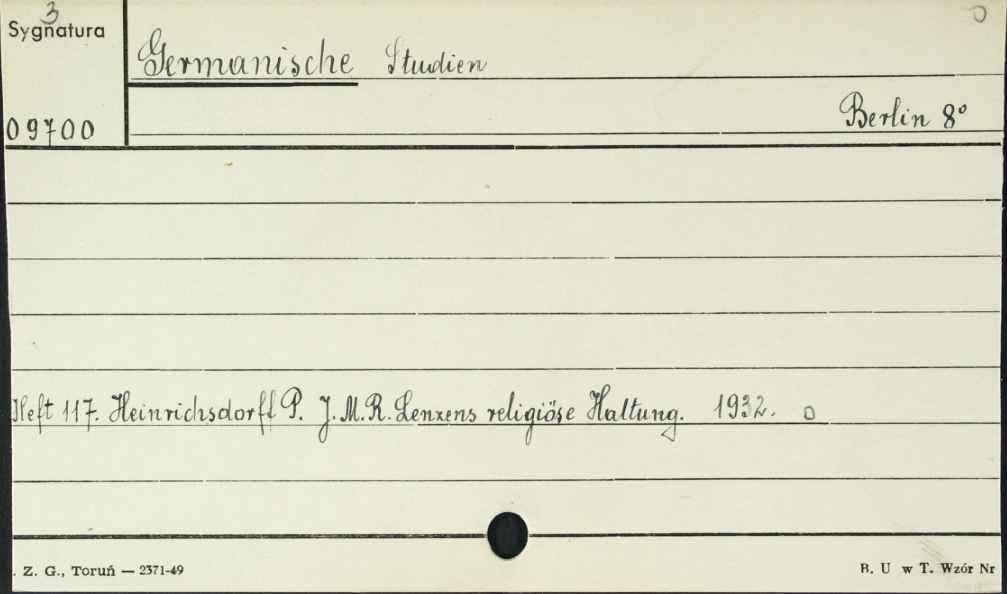 3
Sygnatura
Germanische Studien
Berlin 8°
09700
Heft 117. Heinrichsdorff P. J.M.R. Lenzens religiöse Haltung. 1932. o
. Z. G., Toruń — 2371-49
B. U w T. Wzór Nr